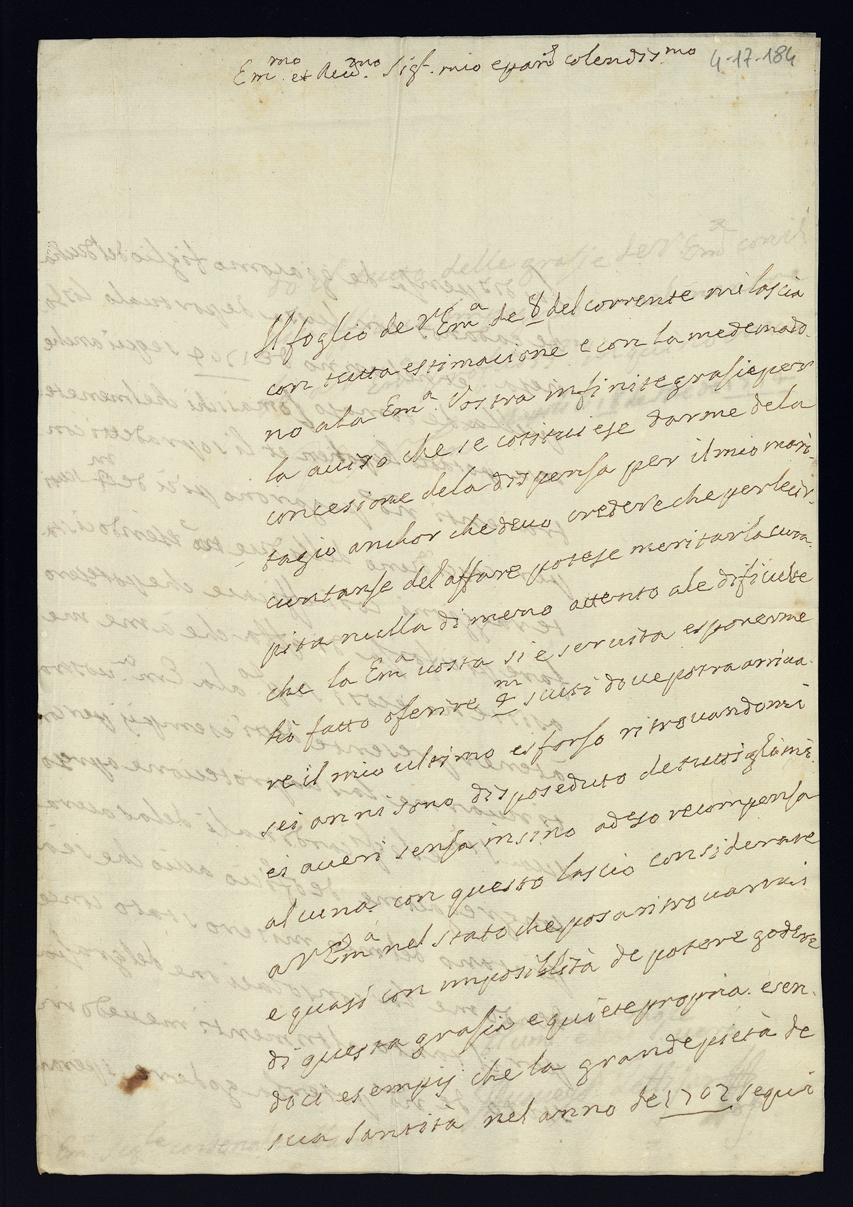 Em.mo et Reu.mo Sig.r mio e pare colendis.mo 4-17-184
Il foglio de V.ra Em.a de 8 del corrente mi lascia
con tutta estimacione e con la medema do-
no a la Em.a Vostra infinite grasie per
la auiso che se costituiese darme dela
concesione dela dispensa per il mio mari-
tagio anchor che deuo credere che per le cir-
cuntanse del affare potese meritarla cura-
pita nulla di meno attento ale dificulte
che la Em.a uosta si e seruita esponerme
hò fatto oferire 4.m scuti doue potra arriua-
re il mio ultimo esforso ritrouandomi
sei anni sono disposeduto de tutti gli mi-
ei aueri sensa insino adeso recompensa
alcuna. con questo lascio considerare
a V.ra Em.a nel stato che posa ritrouarmi
e quasi con imposiblità de potere godere
di questa grasia e quiete propria. esen-
doui esempij che la grande pietà de
sua santità nel anno de 1702 sequi